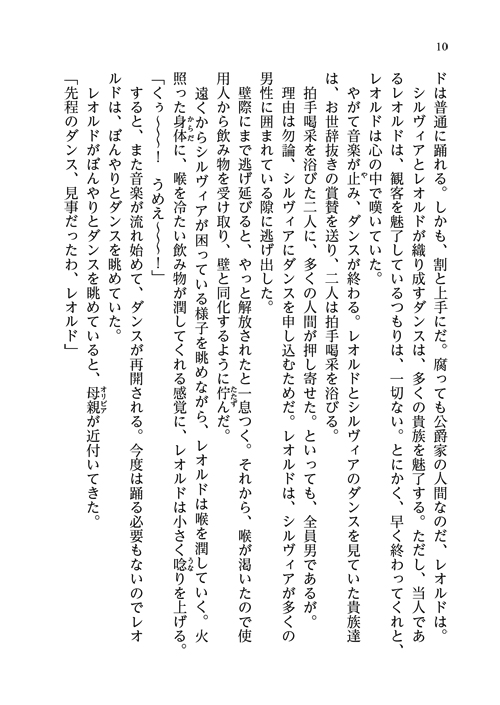 10
ドは普通に踊れる。しかも、割と上手にだ。腐っても公爵家の人間なのだ、レオルドは。
シルヴィアとレオルドが織り成すダンスは、多くの貴族を魅了する。ただし、当人であ
るレオルドは、観客を魅了しているつもりは、一切ない。とにかく、早く終わってくれと、
レオルドは心の中で嘆いていた。
やがて音楽が止み、ダンスが終わる。レオルドとシルヴィアのダンスを見ていた貴族達
は、お世辞抜きの賞賛を送り、二人は拍手喝采を浴びる。
拍手喝采を浴びた二人に、多くの人間が押し寄せた。といっても、全員男であるが。
理由は勿論、シルヴィアにダンスを申し込むためだ。レオルドは、シルヴィアが多くの
男性に囲まれている隙に逃げ出した。
壁際にまで逃げ延びると、やっと解放されたと一息つく。それから、喉が渇いたので使
用人から飲み物を受け取り、壁と同化するように佇んだ。
遠くからシルヴィアが困っている様子を眺めながら、レオルドは喉を潤していく。火
照った身体に、喉を冷たい飲み物が潤してくれる感覚に、レオルドは小さく唸りを上げる。
「くぅ〜〜〜！　うめえ〜〜〜！」
すると、また音楽が流れ始めて、ダンスが再開される。今度は踊る必要もないのでレオ
ルドは、ぼんやりとダンスを眺めていた。
レオルドがぼんやりとダンスを眺めていると、母親が近付いてきた。
「先程のダンス、見事だったわ、レオルド」